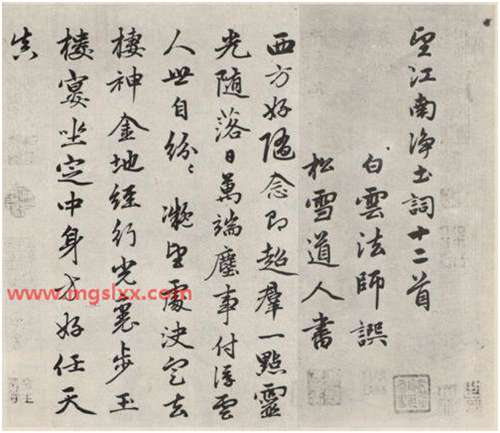 望江南淨土詞十二首
白雲法師譔
松雪道人書
西方好隨念即超羣一點靈
光隨落日萬端塵事付浮雲
人世自紛〻凝望處決定去
棲神金地經行光裏步玉
樓宴坐定中身方好任天
真
www.mgslxx.com